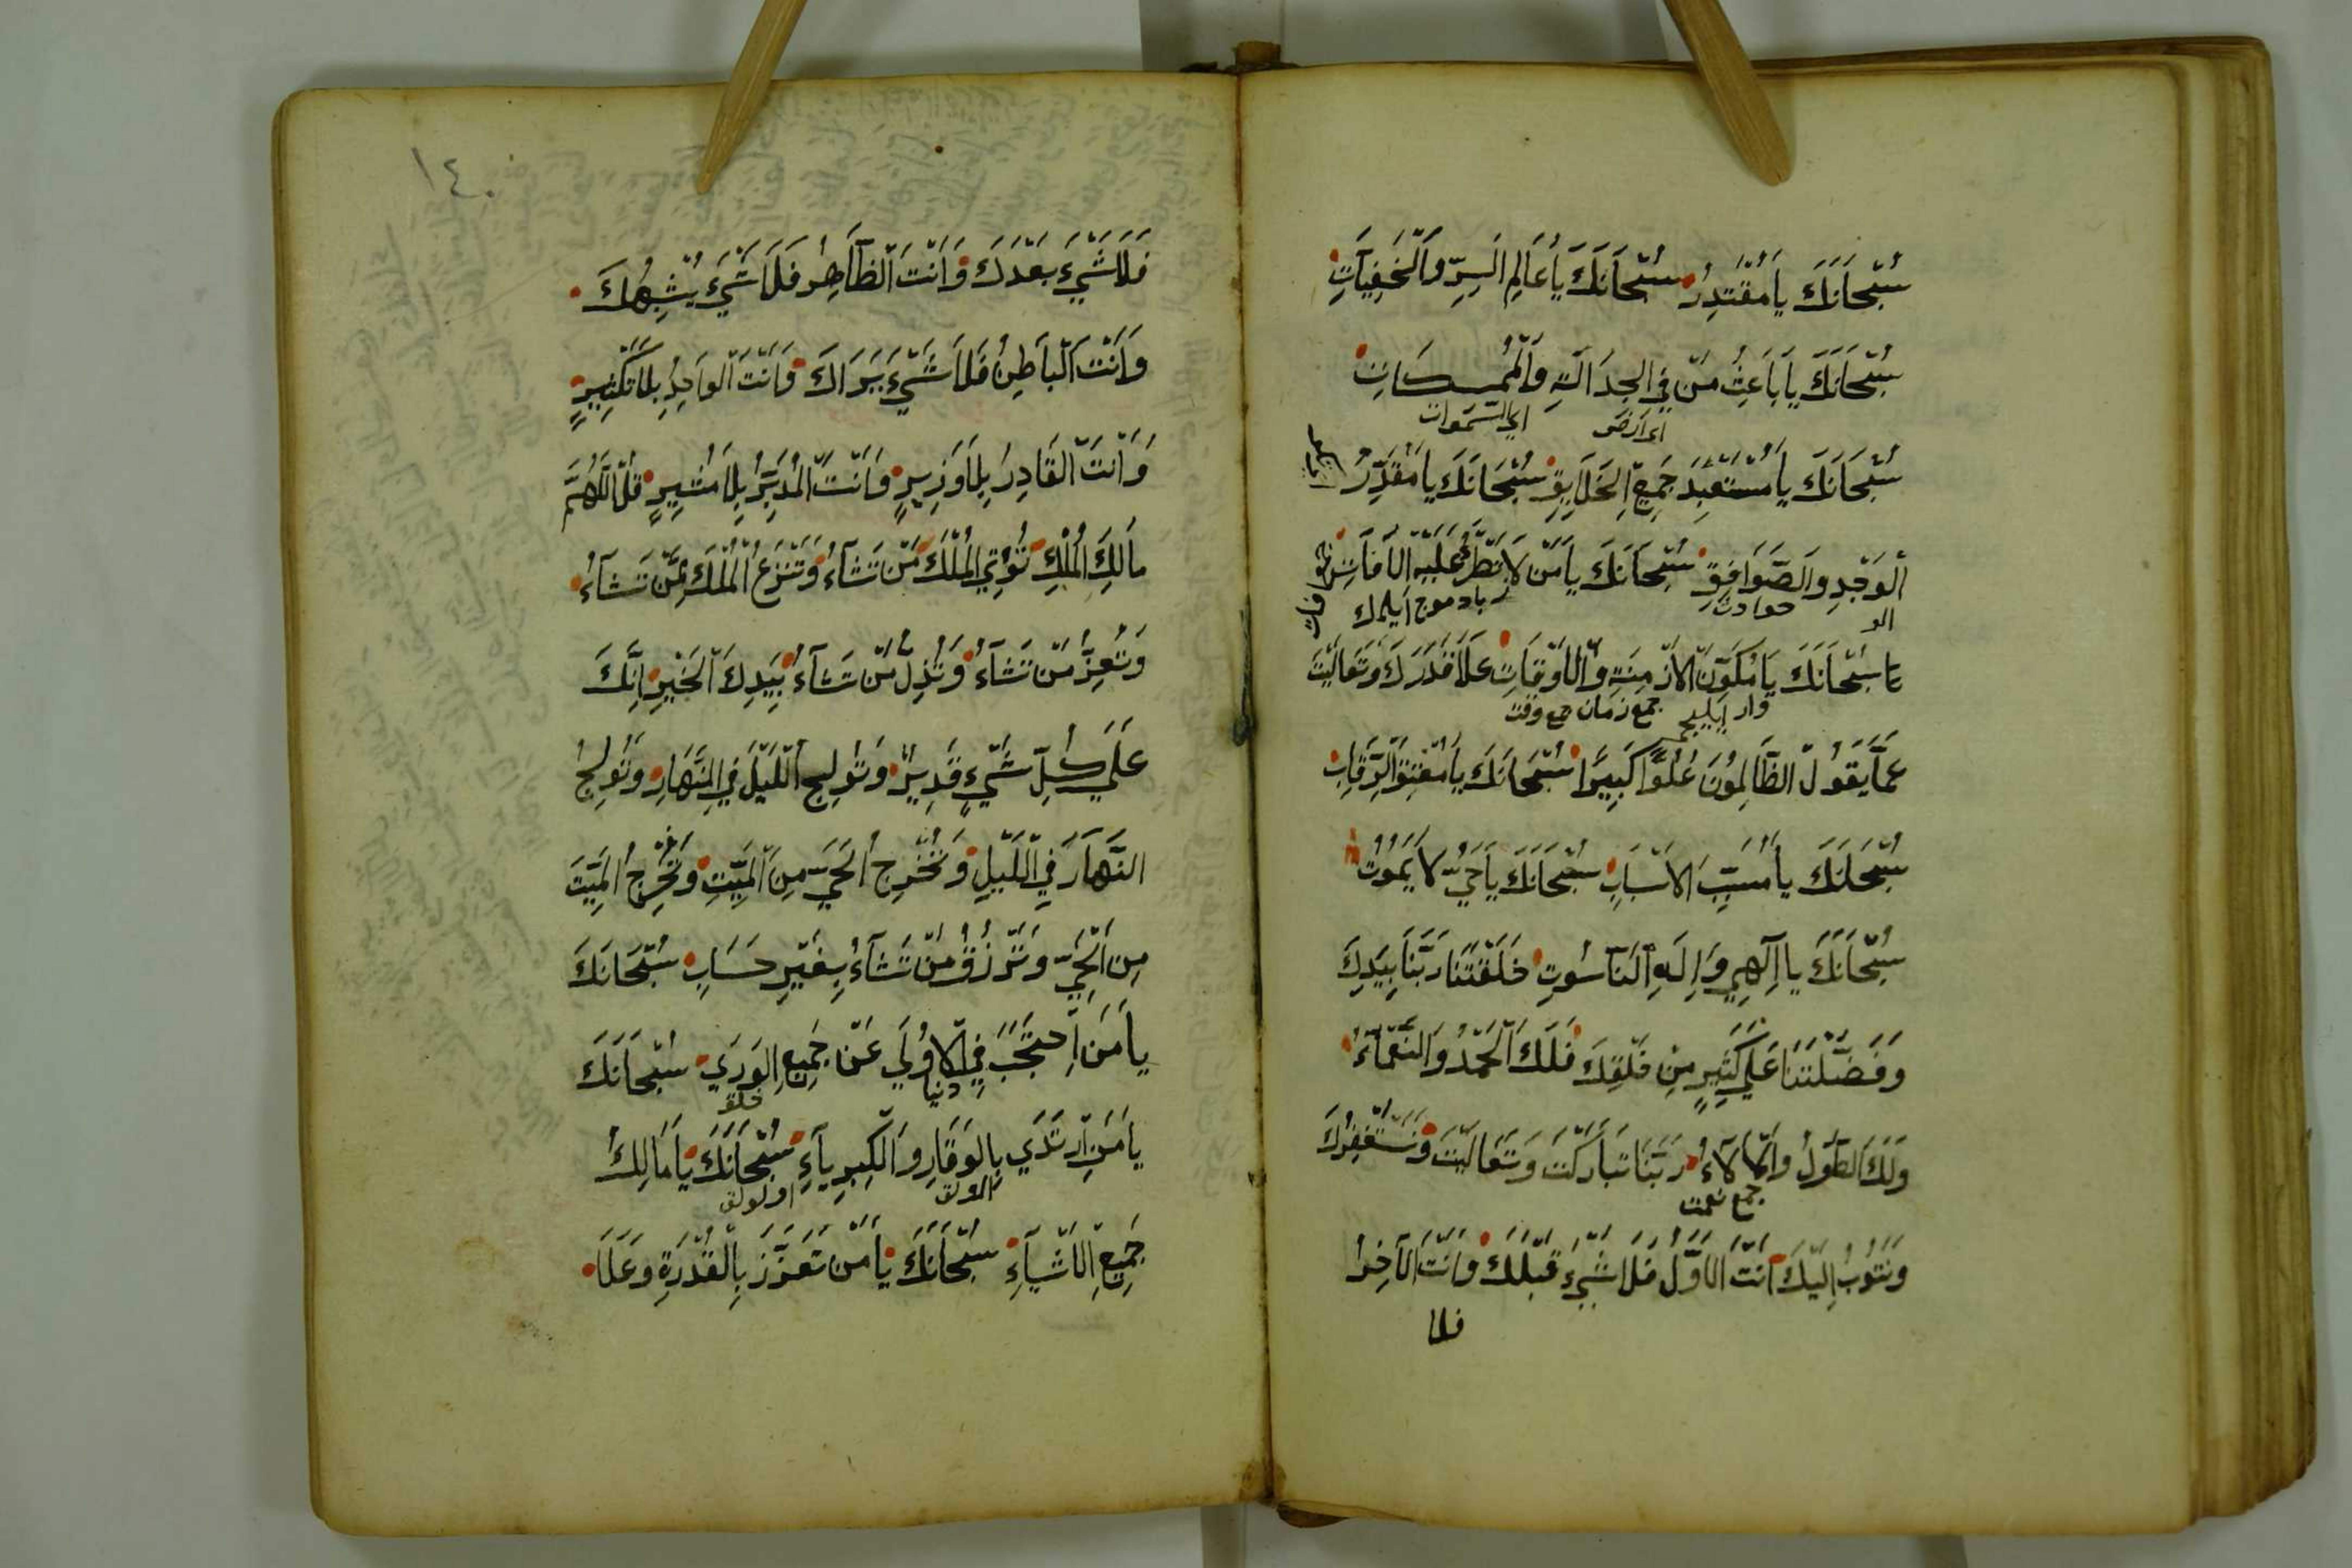 سُبْحَانَكَ يَا مُقْتَدِرُ سُبْحَانَكَ يَا عَالِمَ السِّرِّ وَالْخَفِيَّاتِ
سُبْحَانَكَ يَا بَاعِثُ مَنْ فِي الْجَدَالَةِ وَالْمُسْكَاتِ
اى ارض اي السموات
سُبْحَانَكَ يَا مُسْتَعْبِدَ جَمِيعِ الْخَلَايِقِ سُبْحَانَكَ يَا مُقَدِّرُ
الْوَجْدِ وَالصَّوَافِقِ سُبْحَانَكَ يَا مَنْ لَا تَطْرُءُ عَلَيْهِ الْآفَاتِ
حوادث
سُبْحَانَكَ يَا مُكَوِّنَ الْأَزْمِنَةِ وَالْأَوْقَاتِ عَلَا قَدْرُكَ وَتَعَالَيْتَ
وار ايليجى جمع زمان جمع وقت
عَمَّا يَقُولُ الظَّالِمُونَ عُلُوًّا كَبِيرًا سُبْحَانَكَ يَا مُعْتِقَ الرِّقَابِ
سُبْحَانَكَ يَا مُسَبِّبَ الْأَسْبَابِ سُبْحَانَكَ يَا حَيُّ لَا يَمُوتُ
سُبْحَانَكَ يَا إِلَهِي وَإِلَهِ النَّاسُوتِ خَلَقْتَنَا رَبَّنَا بِيَدِكَ
وَفَضَّلْتَنَا عَلَى كَثِيرٍ مِنْ خَلْقِكَ فَلَكَ الْحَمْدُ وَالنَّعْمَاءُ
وَلَكَ الطَّوْلُ وَالْآلَاءُ رَبَّنَا تَبَارَكْتَ وَتَعَالَيْتَ وَنَسْتَغْفِرُكَ
جمع نعمت
وَنَتُوبُ إِلَيْكَ أَنْتَ الْأَوَّلُ فَلَا شَيْءَ قَبْلَكَ وَأَنْتَ الْآخِرُ
فلا
١٤٠
فَلَا شَيْءَ بَعْدَكَ وَأَنْتَ الظَّاهِرُ فَلَا شَيْءَ يُشْبِهُكَ
وَأَنْتَ الْبَاطِنُ فَلَا شَيْءَ يَرَاكَ وَأَنْتَ الْوَاحِدُ بِلَا تَكْثِيرٍ
وَأَنْتَ الْقَادِرُ بِلَا وَزِيرٍ وَأَنْتَ الْمُدَبِّرُ بِلَا مُشِيرٍ قُلِ اللَّهُمَّ
مَالِكَ الْمُلْكِ تُؤْتِي الْمُلْكَ مَنْ تَشَاءُ وَتَنْزِعُ الْمُلْكَ مِمَّنْ تَشَاءُ
وَتُعِزُّ مَنْ تَشَاءُ وَتُذِلُّ مَنْ تَشَاءُ بِيَدِكَ الْخَيْرُ إِنَّكَ
عَلَى كُلِّ شَيْءٍ قَدِيرٌ وَتُولِجُ اللَّيْلَ فِي النَّهَارِ وَتُولِجُ
النَّهَارَ فِي اللَّيْلِ وَتُخْرِجُ الْحَيَّ مِنَ الْمَيِّتِ وَتُخْرِجُ الْمَيِّتَ
مِنَ الْحَيِّ وَتَرْزُقُ مَنْ تَشَاءُ بِغَيْرِ حِسَابٍ سُبْحَانَكَ
يَا مَنِ احْتَجَبَ فِي الْأُولَى عَنْ جَمِيعِ الْوَرَى سُبْحَانَكَ
دنيا خلق
يَا مَنِ ارْتَدَى بِالْوَقَارِ وَالْكِبْرِيَاءِ سُبْحَانَكَ يَا مَالِكَ
اولولق
جَمِيعِ الْأَشْيَاءِ سُبْحَانَكَ يَا مَنْ تَعَزَّزَ بِالْقُدْرَةِ وَعَلَا